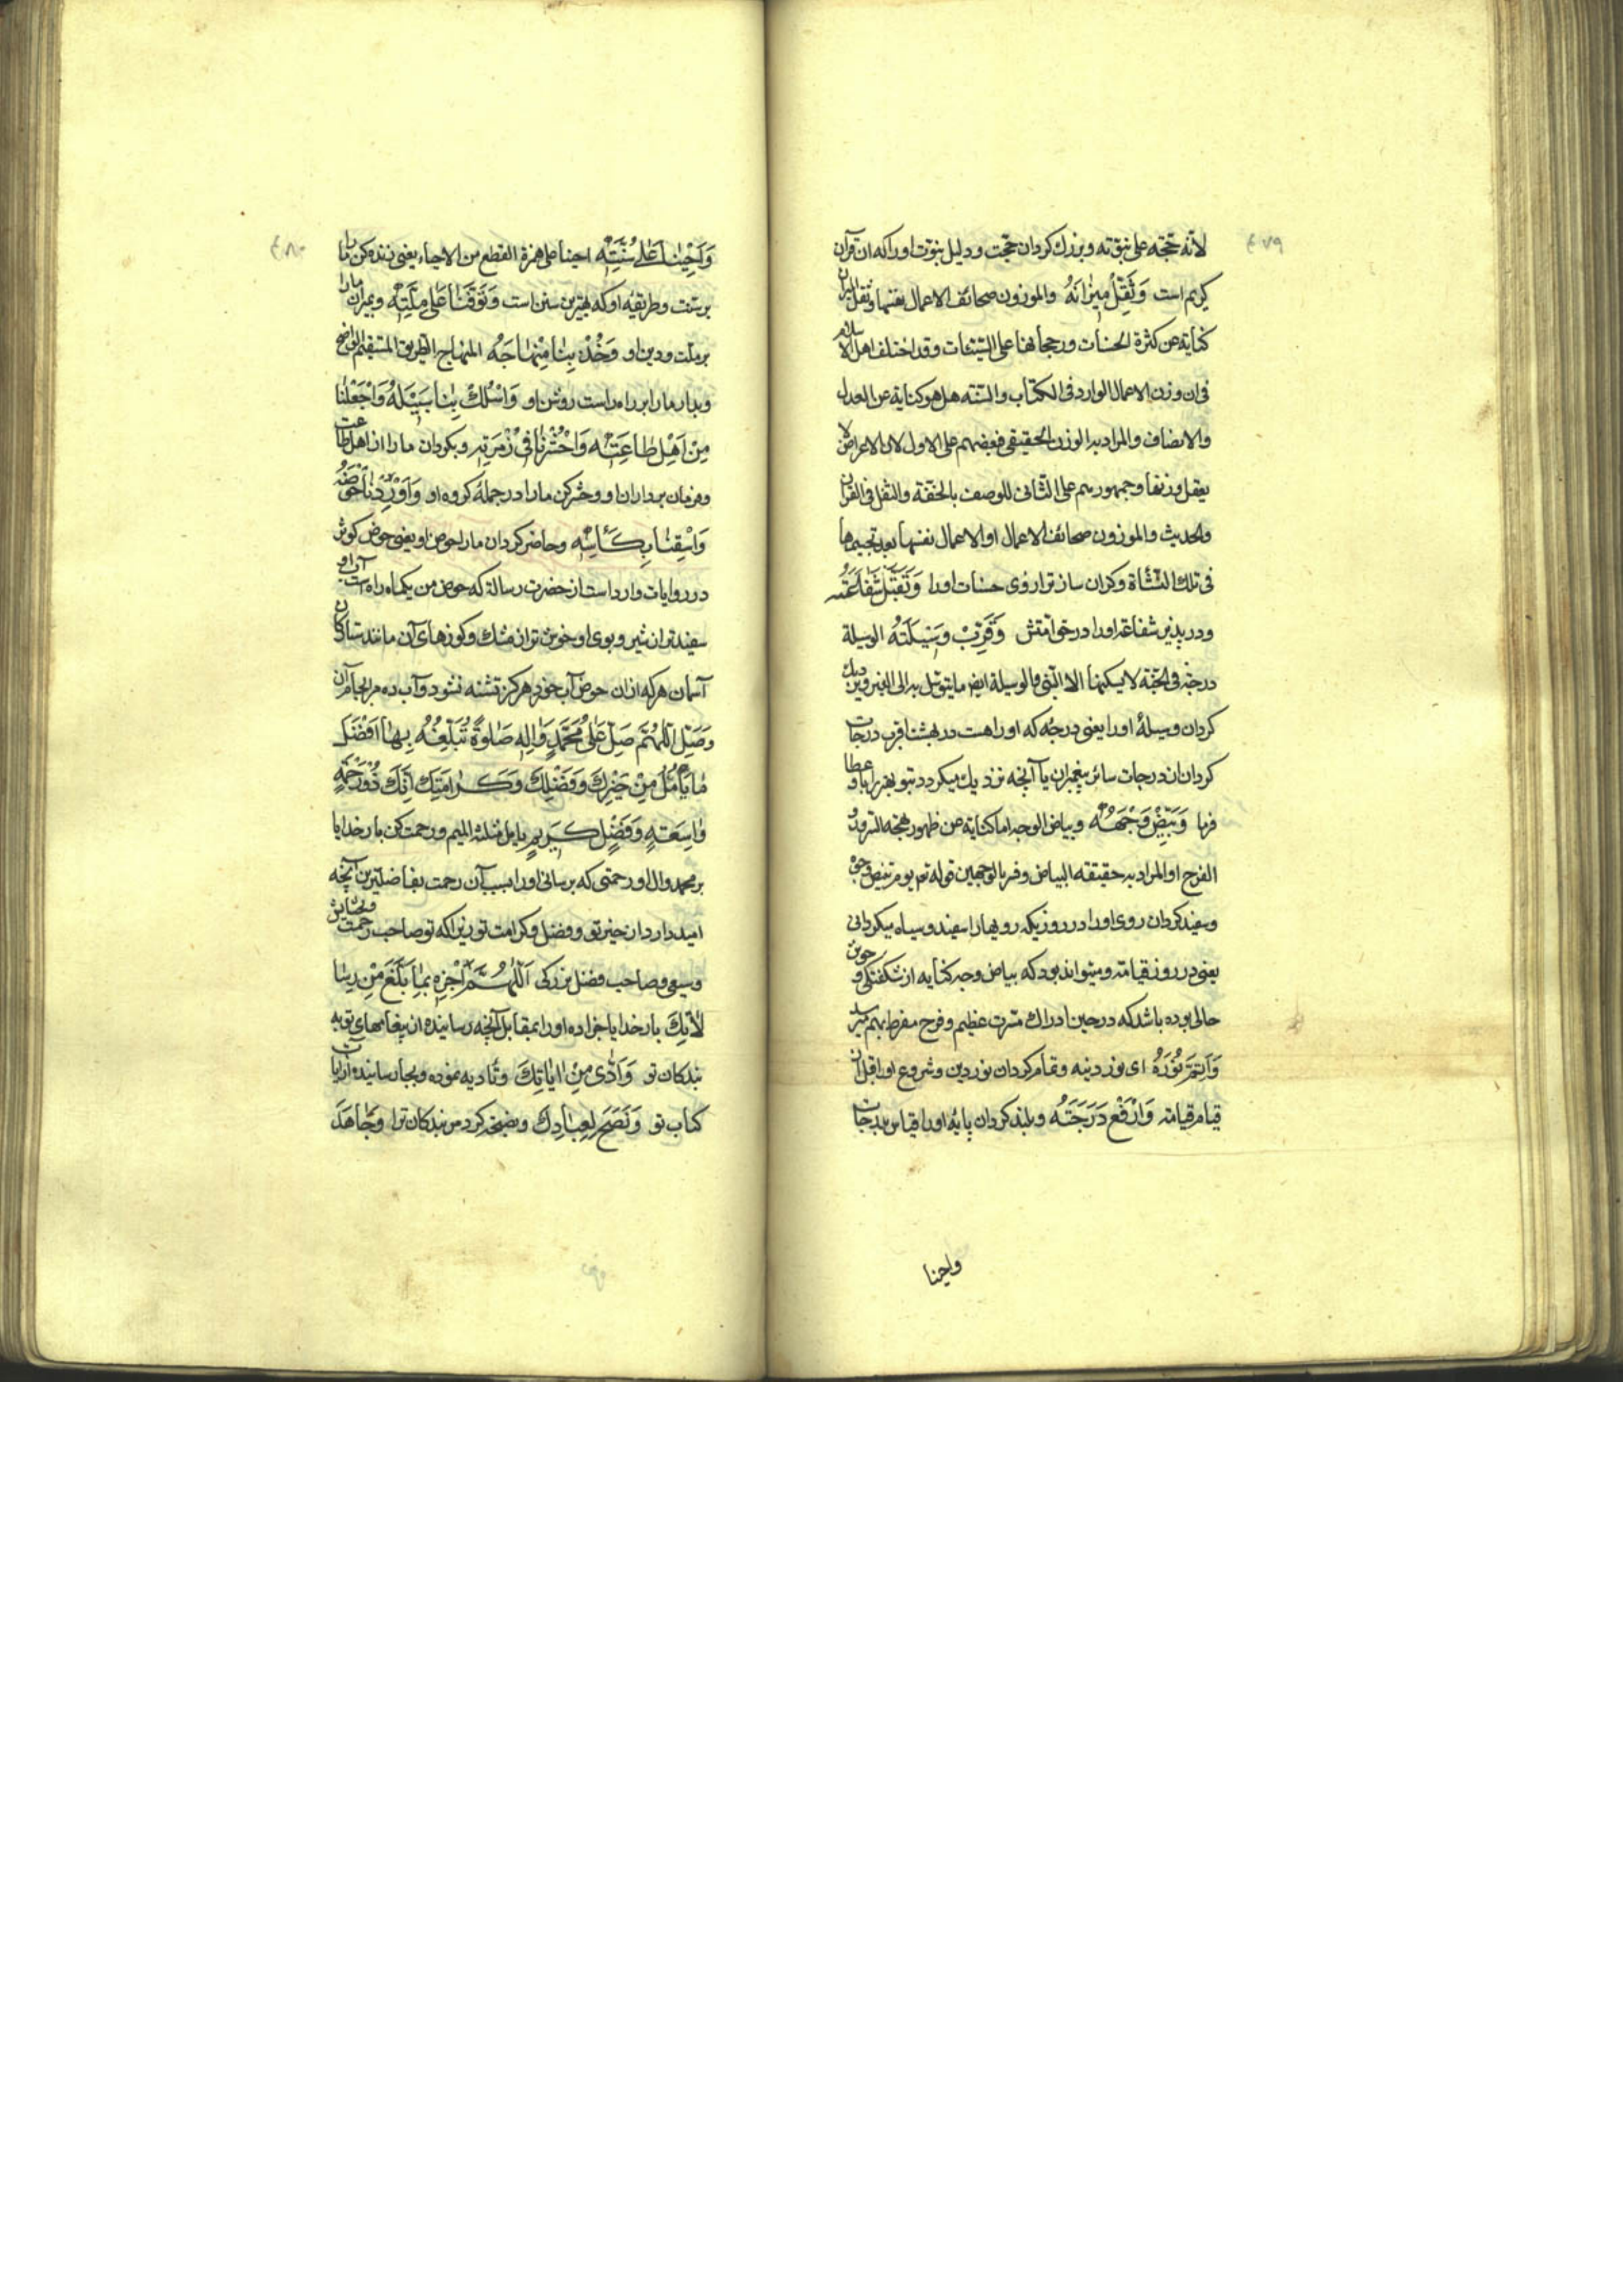 ٤٧٩
لانّه حجّته علی نبوّته و بزرك كردان حجّت و دلیل نبوّت او را كه ان قرآن
كریم است وَثَقِّلْ مِیزٰانَهُ والموزون صحائف الاعمال نفسها وثقل المیزان
كنایة عن كثرة الحسنات ورجحانها علی السّیّئات وقد اختلف اهل الاسلام
فی ان وزن الاعمال الوارد فی الكتاب والسّنّه هل هو كنایة عن العدل
والانصاف والمراد به الوزن الحقیقی فبعضهم علی الاول لان الاعراض لا
یعقل وزنها وجمهورهم علی الثانی للوصف بالخفّة والثقل فی القرآن
والحدیث والموزون صحائف الاعمال او الاعمال نفسها بعد تجسیمها
فی تلك النشأة وكران ساز ترازوی حسنات او را وَتَقَبَّلْ شَفٰاعَتَهُ
ودر پذیر شفاعة او را در حق امتش وَقَرِّبْ وَسِیلَتَهُ الوسیلة
درجة فی الجنّة لا یسكنها الا النّبی والوسیلة ایضا ما یتوسّل به الی الغیر و نزدیك
كردان وسیلهٔ او را یعنی درجهٔ كه او راهست در بهشت اقرب درجات
كردان از درجات سائر پیغمبران یا آنچه نزدیك میكردد بتو بغیر او را عطا
فرما وَبَیِّضْ وَجْهَهُ وبیاض الوجه اما كنایة عن ظهور بهجة السّرور و
الفرح او المراد به حقیقة البیاض وفسر بالوجهین قوله تم یوم تبیض وجوه
وسفید كردان روی او را در روزیكه رویها را سفید وسیاه میكردانی
یعنی در روز قیامة ومیتواند بود كه بیاض وجه كنایه از شكفتكی و خوش
حالی بوده باشد كه در حین ادراك مسّرت عظیم وفرح مفرط بهم میرسد
وَاَتِمَّ نُورَهُ ای نور دینه وتمام كردان نور دین وشروع او را قبل از
قیام قیامة وَارْفَعْ دَرَجَتَهُ وبلند كردان پایهٔ او را قیاس بدرجات
واحینا
٤٨٠
وَاَحْیِنٰا عَلٰی سُنَّتِهِ احینا علی همزة القطع من الاحیاء یعنی زنده كن ما را
بر سنّت وطریقهٔ او كه بهترین سنن است وَتَوَفَّنٰا عَلٰی مِلَّتِهِ وبمیران ما را
بر ملّت ودین او وَخُذْ بِنٰا مِنْهٰاجَهُ المنهاج الطریق المستقیم الواضح
وبدار ما را بر راه راست روشن او وَاسْلُكْ بِنٰا سَبِیلَهُ وَاجْعَلْنٰا
مِنْ اَهْلِ طٰاعَتِهِ وَاحْشُرْنٰا فِی زُمْرَتِهِ وبكردان ما را از اهل طاعت
وفرمان برداران او وحشر كن ما را در جملهٔ كروه او وَاَوْرِدْنٰا حَوْضَهُ
وَاسْقِنٰا بِكَأْسِهِ وحاضر كردان ما را بحوض او یعنی حوض كوثر
در روایات وارد است از حضرت رسالة كه حوض من یكماه راه است آب او
سفیدتر از شیر وبوی او خوش تر از مشك وكوزهای آن مانند ستاركان
آسمان هركه از ان حوض آب خورد هركز تشنه نشود وآب ده مر ابجام آن
وَصَلِّ اَللّٰهُمَّ صَلِّ عَلٰی مُحَمَّدٍ وَاٰلِهِ صَلٰوةً تُبَلِّغُهُ بِهٰا اَفْضَلَ
مٰا یَأْمُلُ مِنْ خَیْرِكَ وَفَضْلِكَ وَكَرٰامَتِكَ اِنَّكَ ذُو رَحْمَةٍ
وٰاسِعَةٍ وَفَضْلٍ كَرِیمٍ یامل مثلثة المیم ورحمت كن بار خدایا
بر محمد وال او رحمتی كه برسانی او را بسبب آن رحمت بفاضلترین آنچه
امید دارد از خیر تو وفضل وكرامت تو زیرا كه تو صاحب رحمت وبخشایش
وسیعی وصاحب فضل بزركی اَللّٰهُمَّ اجْزِهِ بِمٰا بَلَّغَ مِنْ رِسٰا
لاٰتِكَ بار خدایا جزا ده او را بمقابل آنچه رسانیده از پیغامهای تو به
بندكان تو وَاَدّٰی مِنْ اٰیٰاتِكَ وتادیه نموده وبجا رسانیده از ایات
كتاب تو وَنَصَحَ لِعِبٰادِكَ ونصیحة كرد مر بندكان ترا وَجٰاهَدَ